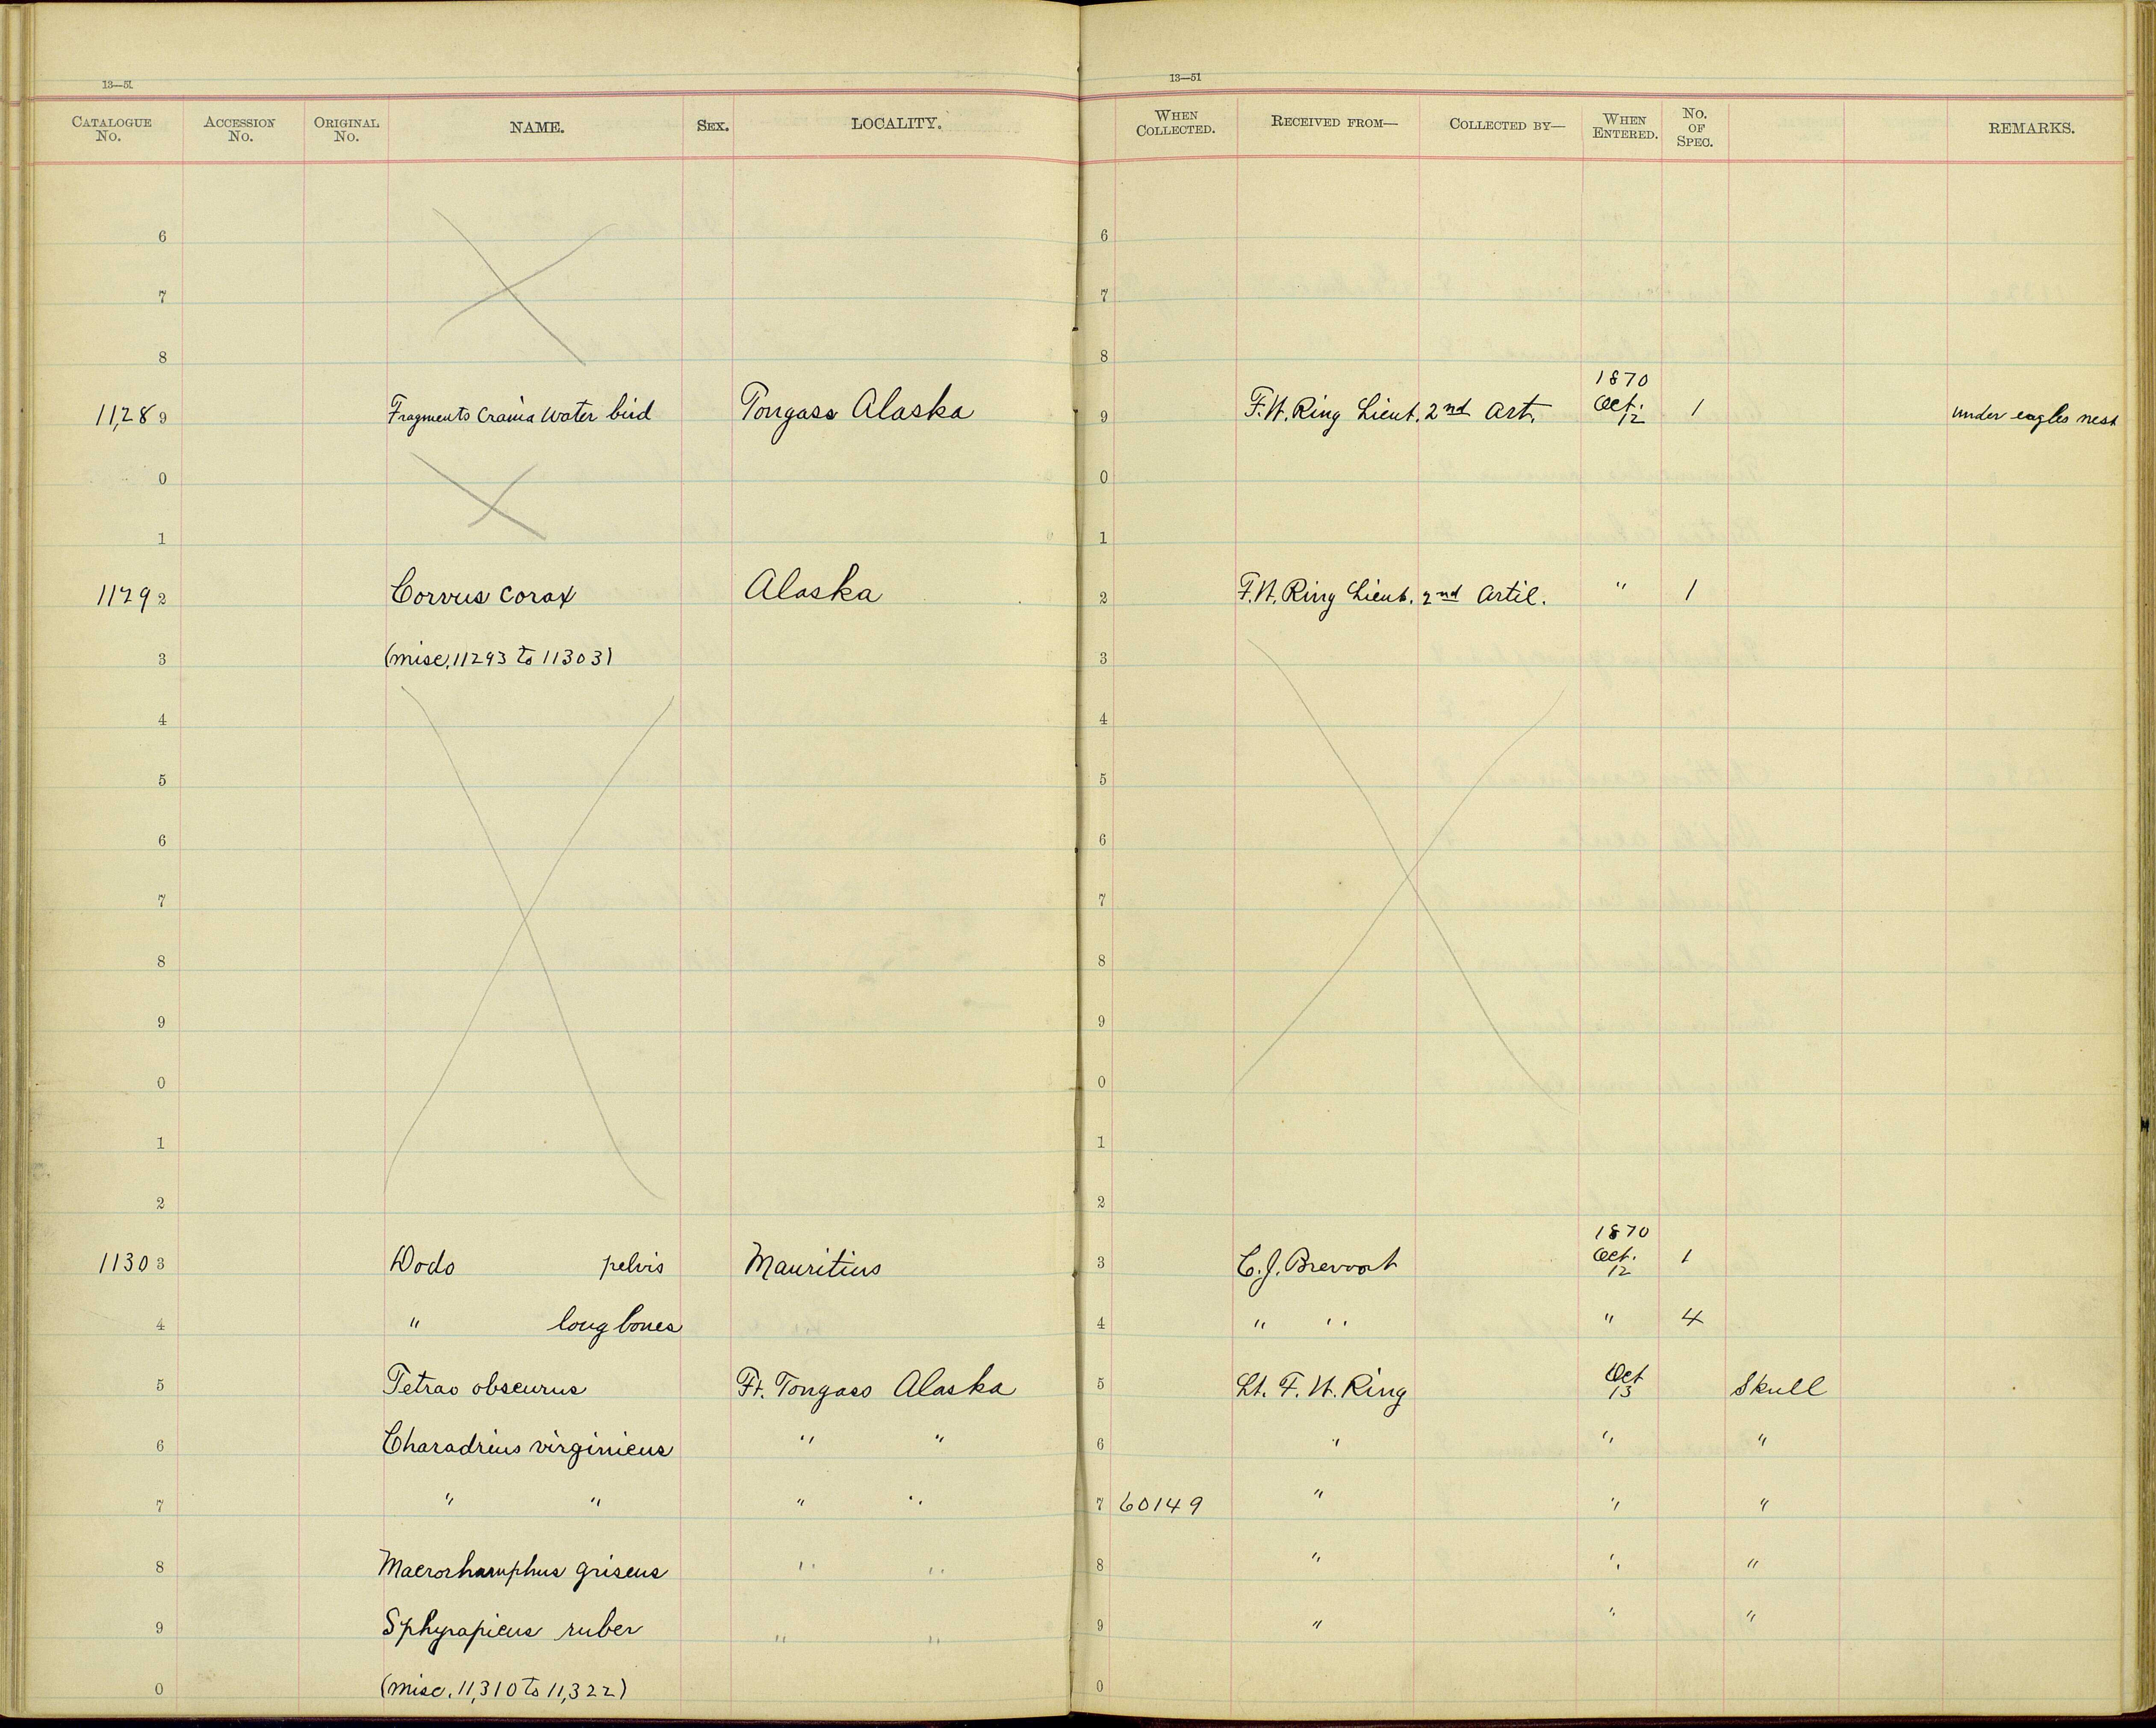 13—51 13—51
CATALOGUE No. ACCESSION No. ORIGINAL No. NAME. SEX. LOCALITY. WHEN COLLECTED. RECEIVED FROM— COLLECTED BY— WHEN ENTERED. No. OF SPEC. REMARKS.
6 6
7 7
8 8
11,289 Fragments Crania Water bird Tongass Alaska 9 F. W. Ring Lieut. 2nd Art. 1870 Oct. 12 1 under eagles nest
0 0
1 1
11292 Corvus corax Alaska 2 F. W. Ring Lieut. 2nd Artil. " 1
3 (misc, 11293 to 11303) 3
4 4
5 5
6 6
7 7
8 8
9 9
0 0
1 1
2 2
11303 Dodo pelvis Mauritius 3 C. J. Brevoort 1870 Oct. 12 1
4 " long bones 4 " " " 4
5 Tetrao obscurus Ft. Tongass Alaska 5 Lt. F. W. Ring Oct 13 Skull
6 Charadrius virginicus " " 6 " " "
7 " " " " 7 60149 " " "
8 Macrorhamphus griseus " " 8 " " "
9 Sphyrapicus ruber " " 9 " " "
0 (misc. 11,310 to 11,322) 0